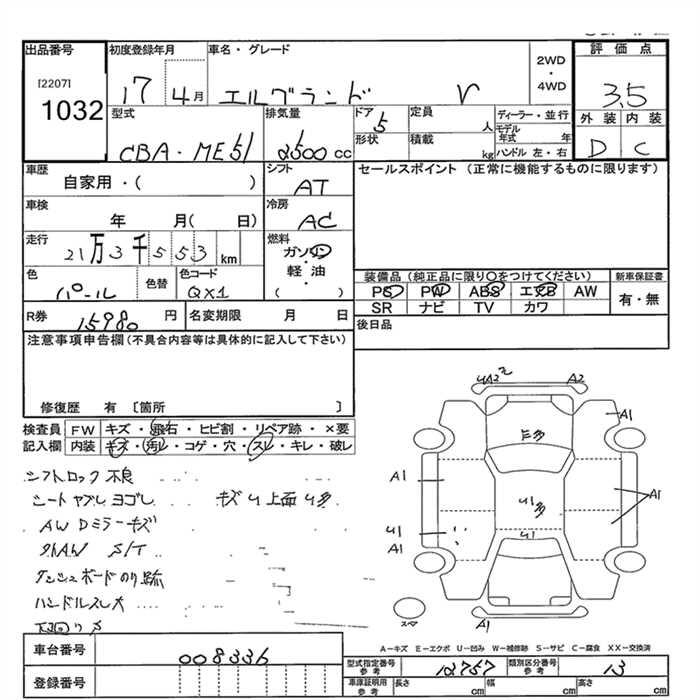 出品番号
[2207]
1032
初度登録年月
17 4月
車名・グレード
エルグランド V
2WD・4WD
評価点
3.5
外装 内装
D C
型式
CBA-ME51
排気量
2500cc
ドア
5
形状
定員 人
積載 kg
ディーラー・並行
モデル年式 年
ハンドル 左・右
車歴
自家用・( )
シフト
AT
セールスポイント (正常に機能するものに限ります)
車検
年 月( 日)
冷房
AC
走行
21万3千553km
燃料
ガソリン
軽油
( )
色
パール
色替
色コード
QX1
装備品(純正品に限り○をつけてください)
新車保証書
PS PW ABS エアB AW
SR ナビ TV カワ
有・無
R券
15980円
名変期限 月 日
後日品
注意事項申告欄(不具合内容等は具体的に記入して下さい)
修復歴 有〔箇所 〕
検査員記入欄
FW キズ・飛石・ヒビ割・リペア跡・×要
内装 キズ・汚レ・コゲ・穴・スレ・キレ・破レ
シフトロック不良
シートヤブレヨゴレ キズU上面U多
AW Dミラーキズ
外AW S/T
ダッシュボードのり跡
ハンドルスレ大
下回りサ
UA2 A2
A1
E多
A1
A1
U1多
U1
A1
U1
スペア
A1
A-キズ E-エクボ U-凹み W-補修跡 S-サビ C-腐食 XX-交換済
車台番号
008336
登録番号
型式指定番号 参考
12757
類別区分番号 参考
13
車庫証明用 参考
長さ cm
幅 cm
高さ cm